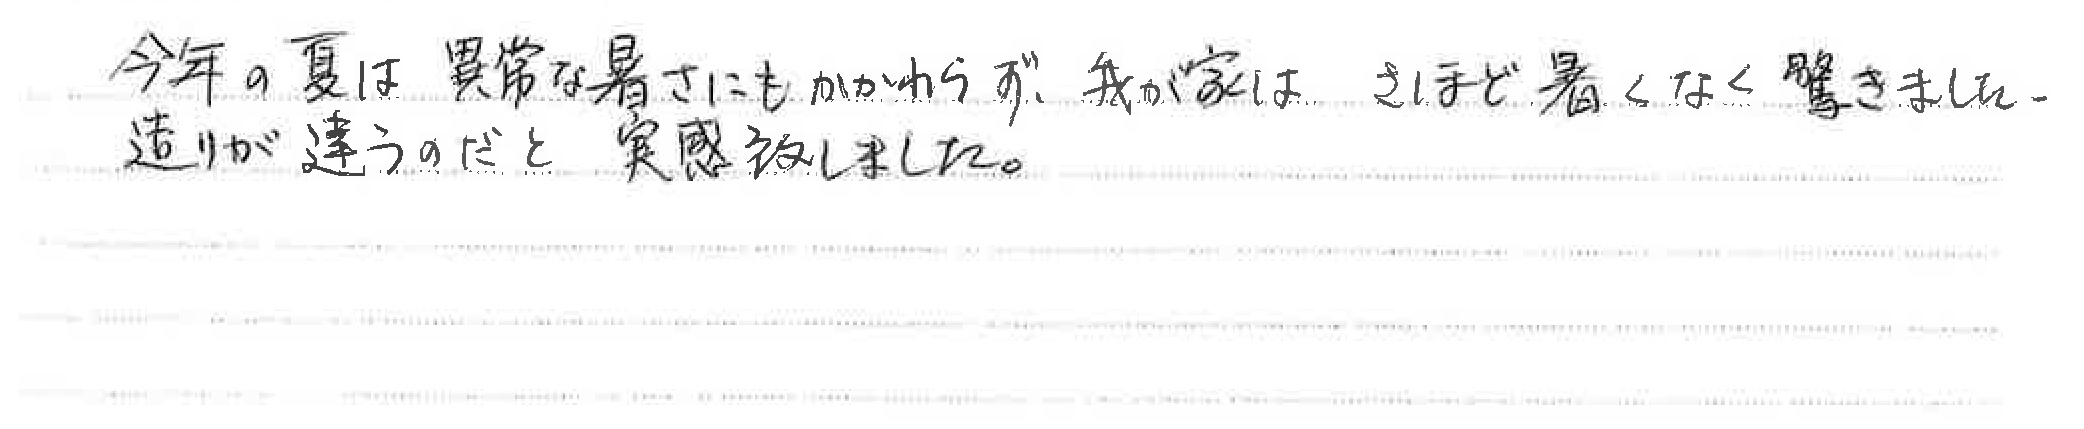 今年の夏は異常な暑さにもかかわらず、我が家は さほど暑くなく驚きました。
造りが違うのだと 実感致しました。